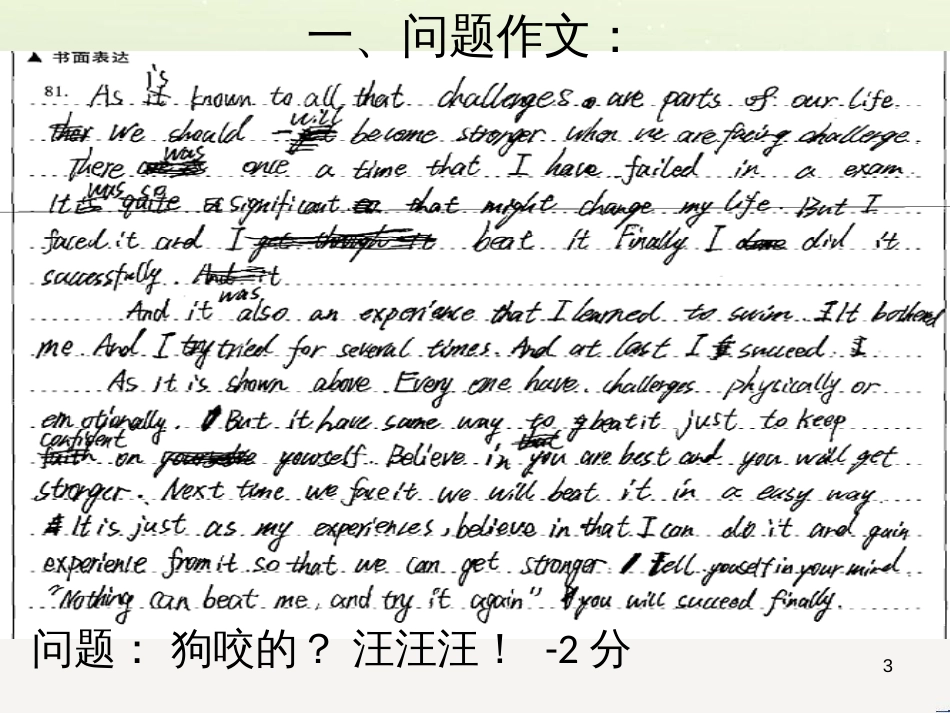 一、问题作文：
▲ 书面表达
81. As is known to all that challenges are parts of our life
We should will become stronger when we are facing challenge.
There was once a time that I have failed in a exam
It was so significant that might change my life. But I
faced it and I beat it Finally I did it
successfully.
And it was also an experience that I learned to swim It bothered
me. And I tried for several times. And at last I succeed.
As it is shown above Every one have challenges physically or
emotionally. But it have same way to beat it just to keep
confident on yourself. Believe in that you are best and you will get
stronger. Next time we face it we will beat it in a easy way
It is just as my experiences, believe in that I can do it and gain
experience from it so that we can get stronger Tell youself in your mind
"Nothing can beat me, and try it again" you will succeed finally.
问题： 狗咬的？ 汪汪汪！ -2 分
3